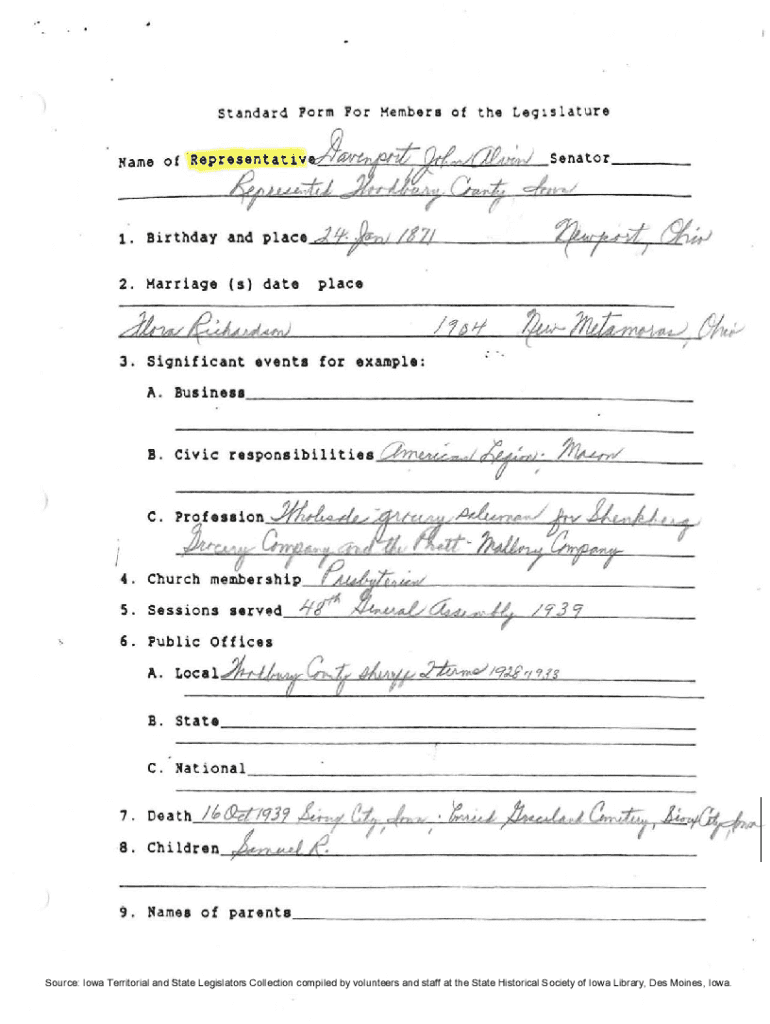 Standard Form For Members of the Legislature
Name of Representative Davenport John Alvin Senator
Represented Woodbury County, Iowa
1. Birthday and place 24 Jan 1871 Newport, Ohio
2. Marriage (s) date place
Flora Richardson 1904 New Metamoras, Ohio
3. Significant events for example:
A. Business
B. Civic responsibilities American Legion. Mason
C. Profession Wholesale grocery salesman for Shenkberg
Grocery Company and the Pratt-Mallory Company
4. Church membership Presbyterian
5. Sessions served 48th General Assembly 1939
6. Public Offices
A. Local Woodbury County Sheriff 2 terms 1928-1933
B. State
C. National
7. Death 16 Oct 1939 Sioux City, Iowa. buried Graceland Cemetery, Sioux City, Iowa
8. Children Samuel R.
9. Names of parents
Source: Iowa Territorial and State Legislators Collection compiled by volunteers and staff at the State Historical Society of Iowa Library, Des Moines, Iowa.